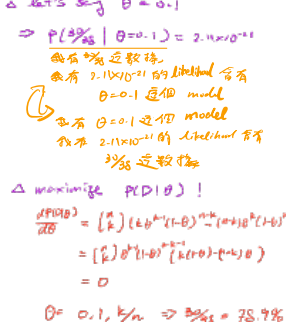 △ let's say θ = 0.1
⇒ P(30/38 | θ=0.1) = 2.11×10⁻²¹
我有 30/38 這數據
我有 2.11×10⁻²¹ 的 likelihood 會有
θ=0.1 這個 model
我有 θ=0.1 這個 model
我有 2.11×10⁻²¹ 的 likelihood 會有
30/38 這數據
△ maximize P(D|θ) !
dP(D|θ)/dθ = (n k)(kθᵏ⁻¹(1-θ)ⁿ⁻ᵏ - (n-k)θᵏ(1-θ)
= (n k)θᵏ⁻¹(1-θ)ⁿ⁻ᵏ⁻¹(k(1-θ)-(n-k)θ)
= 0
θ= 0, 1, k/n ⇒ 30/38 = 78.9%